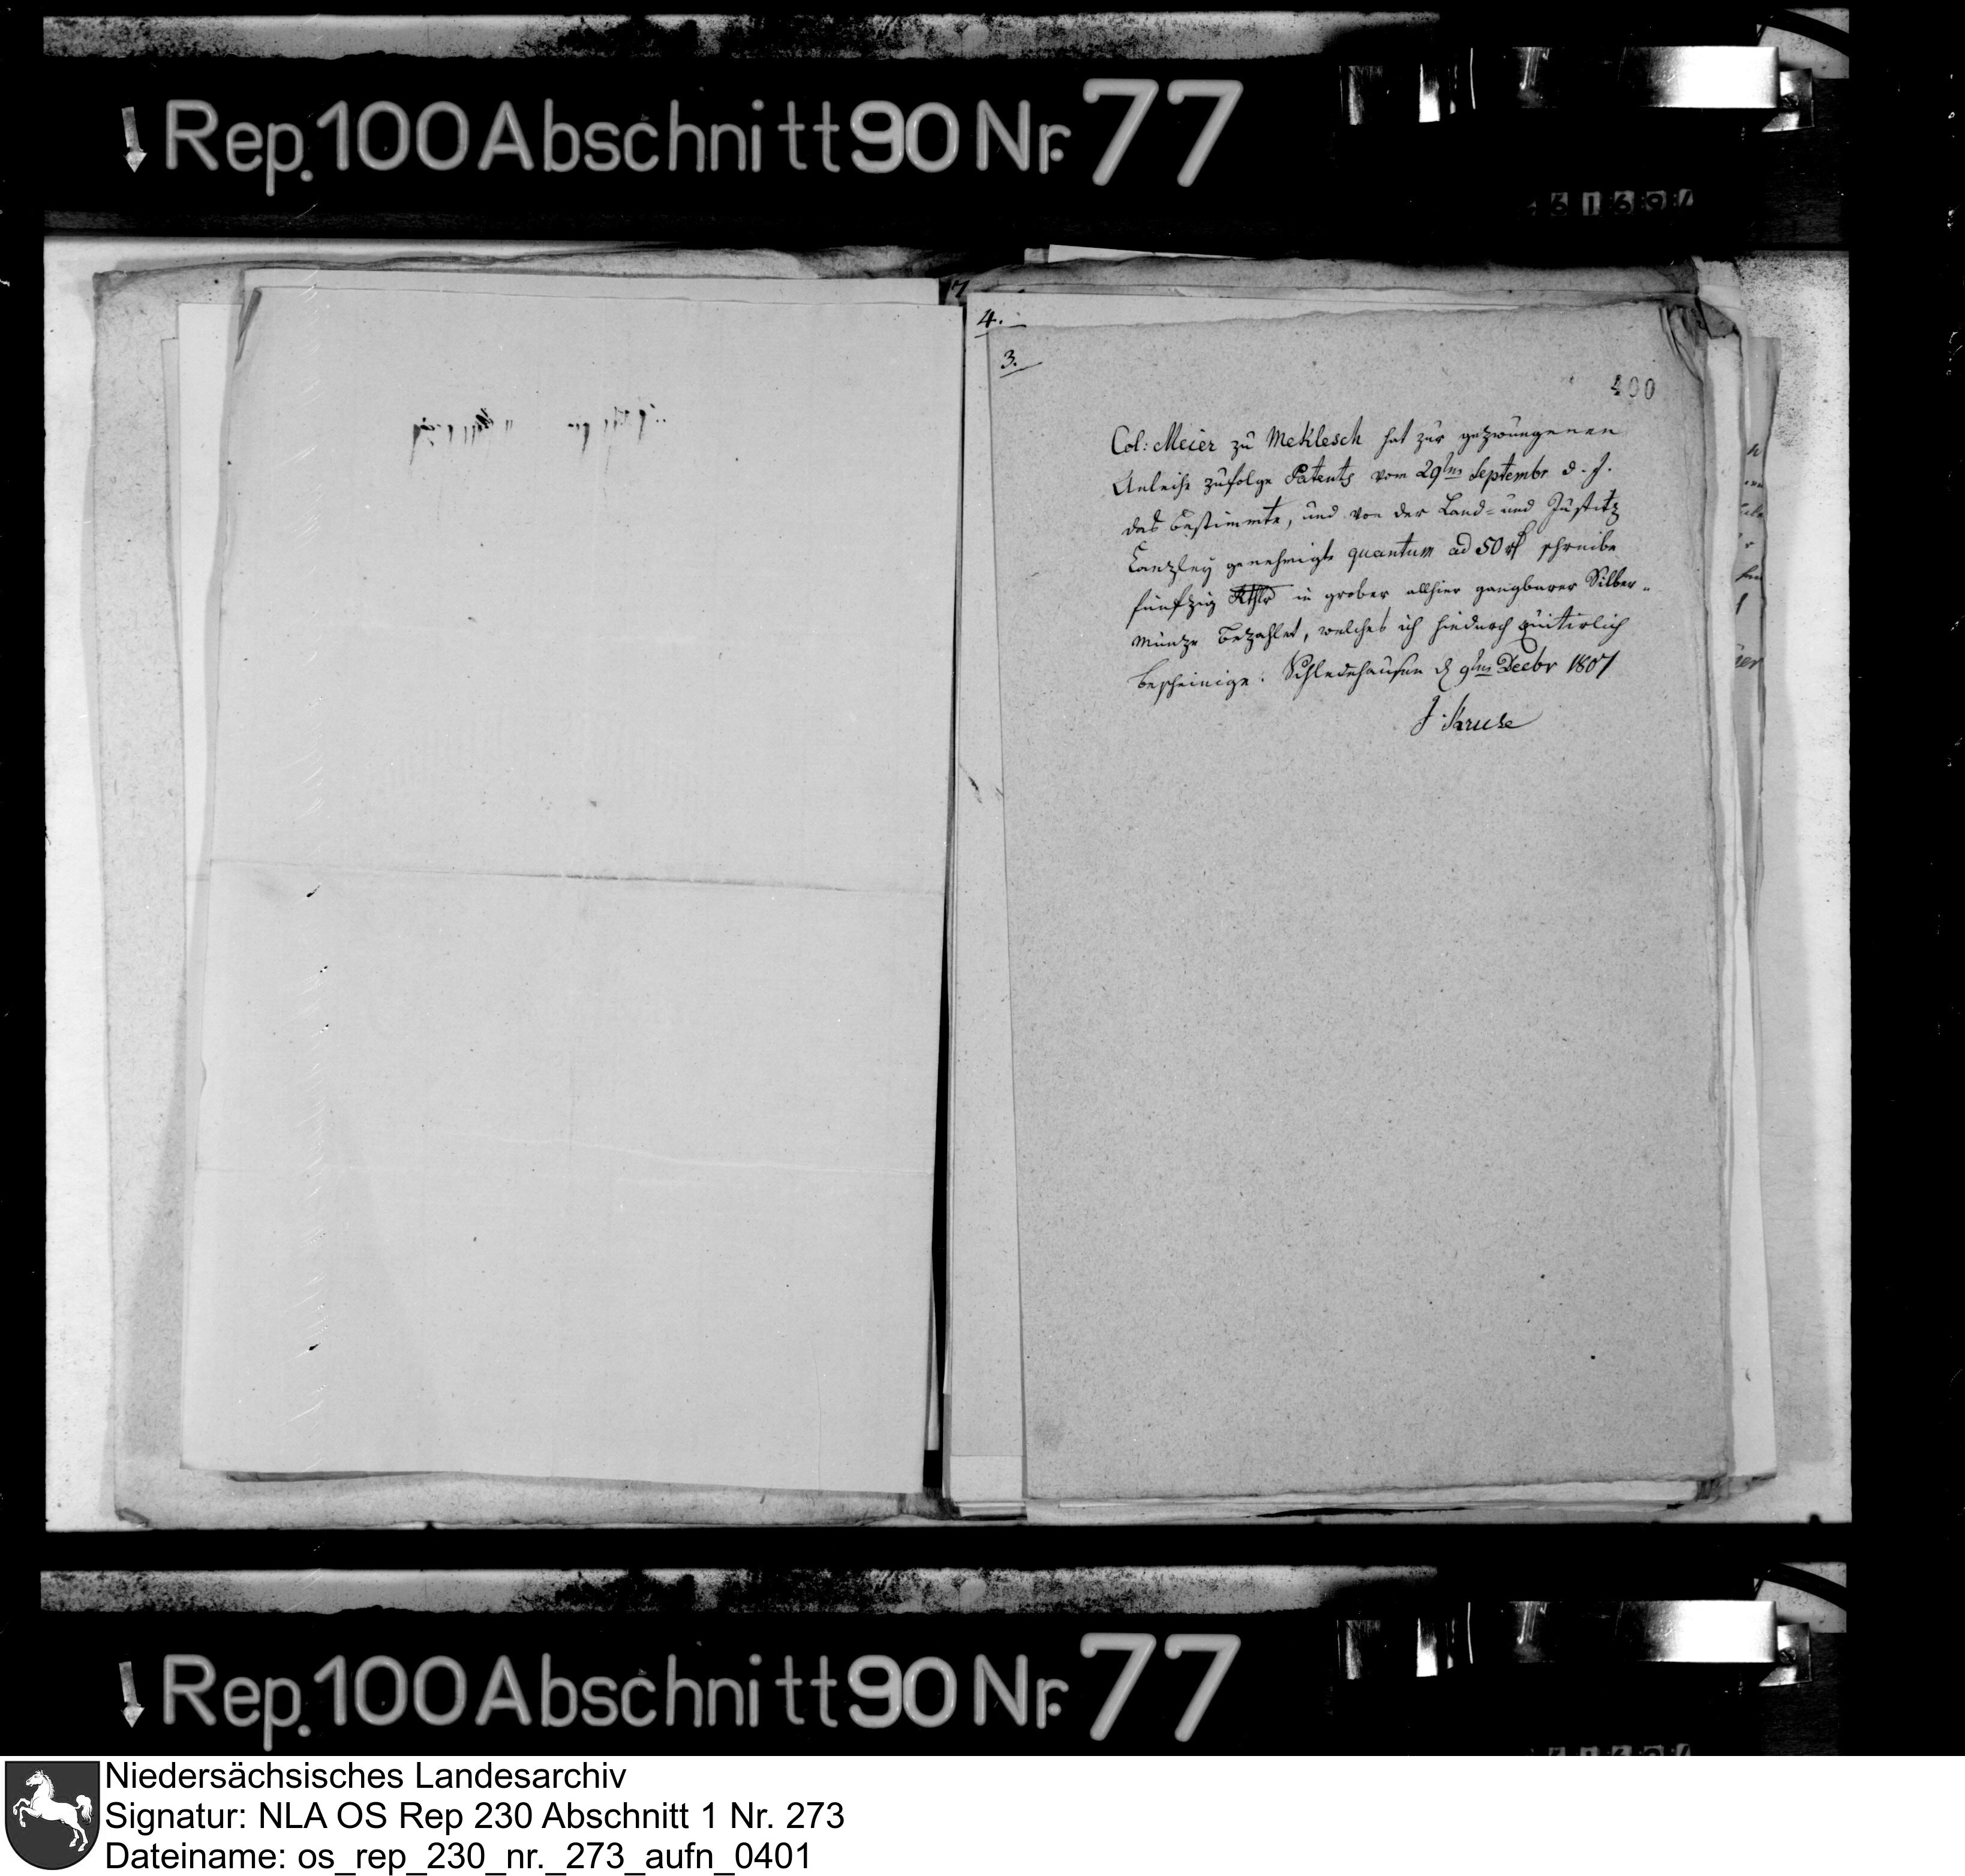 Rep. 100 Abschnitt 90 Nr. 77
4.
3.
400
Col: Meier zu Meklesch hat zur gezwungenen
Anleihe zufolge Patents vom 29ten Septembr d. J.
das bestimmte, und von der Land= und Justitz
Canzley genehmigte quantum ad 50 rt schreibe
funfzig Rthlr in grober allhier gangbarer Silber„
münze bezahlet, welches ich hiedurch quitirlich
bescheinige. Schledehausen d 9ten Decbr 1807
J. Kruse
Rep. 100 Abschnitt 90 Nr. 77
Niedersächsisches Landesarchiv
Signatur: NLA OS Rep 230 Abschnitt 1 Nr. 273
Dateiname: os_rep_230_nr._273_aufn_0401